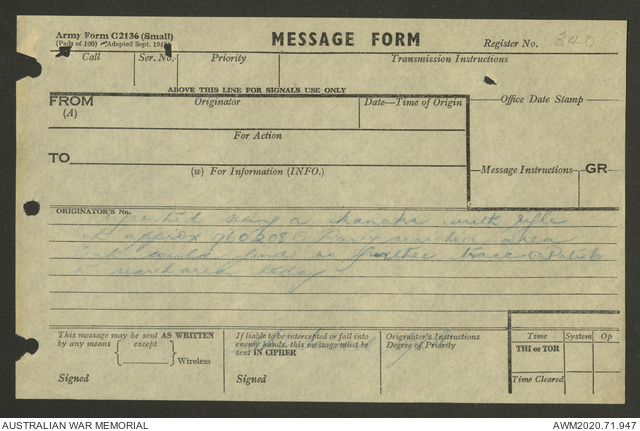 Army Form C2136 (Small)
(Pads of 100) - (Adapted Sept. 1942)
MESSAGE FORM
Register No. 340
Call
Ser. No.
Priority
Transmission Instructions
ABOVE THIS LINE FOR SIGNALS USE ONLY
FROM
(A)
Originator
Date—Time of Origin
Office Date Stamp
For Action
TO
(w) For Information (INFO.)
Message Instructions
GR
ORIGINATOR'S No.
seeing a kanaka with rifle
approx 960208 Party searched area
but could find no further trace Patrols
search area today
This message may be sent AS WRITTEN
by any means except
Wireless
Signed
If liable to be intercepted or fall into
enemy hands, this message must be
sent IN CIPHER
Signed
Originator's Instructions
Degree of Priority
Time
System
Op
THI or TOR
Time Cleared
AUSTRALIAN WAR MEMORIAL
AWM2020.71.947